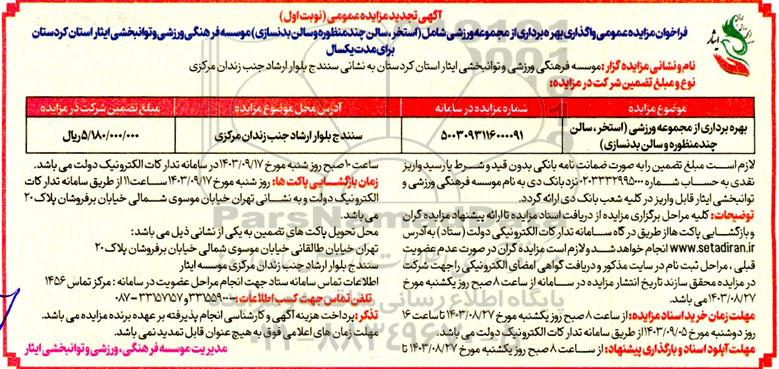 آگهی تجدید مزایده عمومی (نوبت اول)
فراخوان مزایده عمومی واگذاری بهره برداری از مجموعه ورزشی شامل (استخر، سالن چند منظوره و سالن بدنسازی) موسسه فرهنگی ورزشی و توانبخشی ایثار استان کردستان
برای مدت یکسال
ایثار
نام و نشانی مزایده گزار: موسسه فرهنگی ورزشی و توانبخشی ایثار استان کردستان به نشانی سنندج بلوار ارشاد جنب زندان مرکزی
نوع و مبلغ تضمین شرکت در مزایده:
موضوع مزایده
شماره مزایده در سامانه
آدرس محل موضوع مزایده
مبلغ تضمین شرکت در مزایده
بهره برداری از مجموعه ورزشی (استخر، سالن چندمنظوره و سالن بدنسازی)
۵۰۰۳۰۹۳۱۱۶۰۰۰۰۹۱
سنندج بلوار ارشاد جنب زندان مرکزی
۵/۱۸۰/۰۰۰/۰۰۰ریال
لازم است مبلغ تضمین را به صورت ضمانت نامه بانکی بدون قید و شرط یا رسید واریز
نقدی به حساب شماره ۰۲۰۳۳۳۲۹۹۵۰۰۰ نزد بانک دی به نام موسسه فرهنگی ورزشی و
توانبخشی ایثار قابل واریز در کلیه شعب بانک دی ارائه گردد.
توضیحات: کلیه مراحل برگزاری مزایده از دریافت اسناد مزایده تا ارائه پیشنهاد مزایده گران
و بازگشایی پاکت ها از طریق درگاه سامانه تدارکات الکترونیکی دولت (ستاد) به آدرس
www.setadiran.ir انجام خواهد شد و لازم است مزایده گران در صورت عدم عضویت
قبلی، مراحل ثبت نام در سایت مذکور و دریافت گواهی امضای الکترونیکی را جهت شرکت
در مزایده محقق سازند تاریخ انتشار مزایده در سامانه از ساعت ۸ صبح روز یکشنبه مورخ
۱۴۰۳/۰۸/۲۷ می باشد.
مهلت زمان خرید اسناد مزایده: از ساعت ۸ صبح روز یکشنبه مورخ ۱۴۰۳/۰۸/۲۷ تا ساعت ۱۶
روز دوشنبه مورخ ۱۴۰۳/۰۹/۰۵ از طریق سامانه تدارکات الکترونیک دولت می باشد.
مهلت آپلود اسناد و بارگذاری پیشنهاد: از ساعت ۸ صبح روز یکشنبه مورخ ۱۴۰۳/۰۸/۲۷ تا
ساعت ۱۰ صبح روز شنبه مورخ ۱۴۰۳/۰۹/۱۷ در سامانه تدارکات الکترونیک دولت می باشد.
زمان بازگشایی پاکت ها: روز شنبه مورخ ۱۴۰۳/۰۹/۱۷ ساعت ۱۱ از طریق سامانه تدارکات
الکترونیک دولت و به نشانی تهران خیابان موسوی شمالی خیابان برفروشان پلاک ۲۰
می باشد.
محل تحویل پاکت های تضمین به یکی از نشانی ذیل می باشد:
تهران خیابان طالقانی خیابان موسوی شمالی خیابان برفروشان پلاک ۲۰
سنندج بلوار ارشاد جنب زندان مرکزی موسسه ایثار
اطلاعات تماس سامانه ستاد جهت انجام مراحل عضویت در سامانه: مرکز تماس ۱۴۵۶
تلفن تماس جهت کسب اطلاعات: ۳۳۵۵۹۰۰۰-و ۳۳۵۷۷۵۷-۰۸۷
تذکر: پرداخت هزینه آگهی و کارشناسی انجام پذیرفته بر عهده برنده مزایده می باشد.
مهلت زمان های اعلامی فوق به هیچ عنوان قابل تمدید نمی باشد.
مدیریت موسسه فرهنگی، ورزشی و توانبخشی ایثار